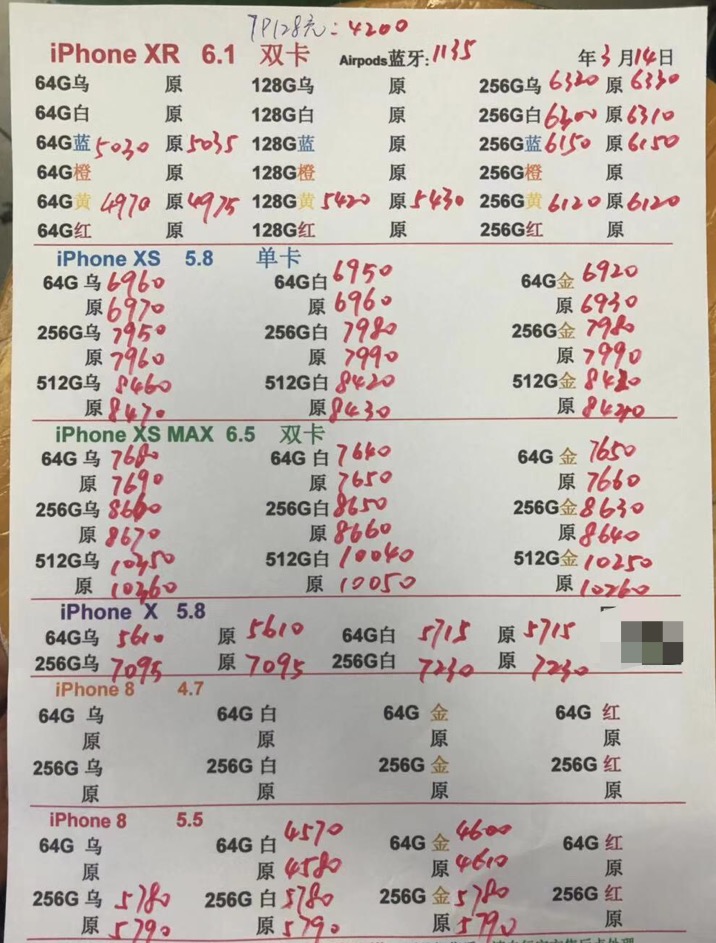 7P128元:4200
iPhone XR 6.1 双卡 Airpods蓝牙:1135 年3月14日
64G乌 原 128G乌 原 256G乌6320 原6330
64G白 原 128G白 原 256G白6300 原6310
64G蓝5030 原5035 128G蓝 原 256G蓝6150 原6150
64G橙 原 128G橙 原 256G橙 原
64G黄4970 原4975 128G黄5420 原5430 256G黄6120 原6120
64G红 原 128G红 原 256G红 原
iPhone XS 5.8 单卡
64G 乌6960 64G白6950 64G金6920
原6970 原6960 原6930
256G乌7950 256G白7980 256G金7980
原7960 原7990 原7990
512G乌8460 512G白8420 512G金
原8470 原8430 原
iPhone XS MAX 6.5 双卡
64G 乌7680 64G 白7640 64G 金7650
原7690 原7650 原7660
256G乌8660 256G白8650 256G金8630
原8670 原8660 原8640
512G乌10450 512G白10040 512G金10250
原10460 原10050 原10260
iPhone X 5.8
64G乌5610 原5610 64G白5715 原5715
256G乌7095 原7095 256G白7230 原7230
iPhone 8 4.7
64G 乌 64G 白 64G 金 64G 红
原 原 原 原
256G 乌 256G 白 256G 金 256G 红
原 原 原 原
iPhone 8 5.5
64G 乌 64G 白4570 64G 金4600 64G 红
原 原4580 原4610 原
256G 乌5780 256G 白5780 256G 金5780 256G 红
原5790 原5790 原5790 原